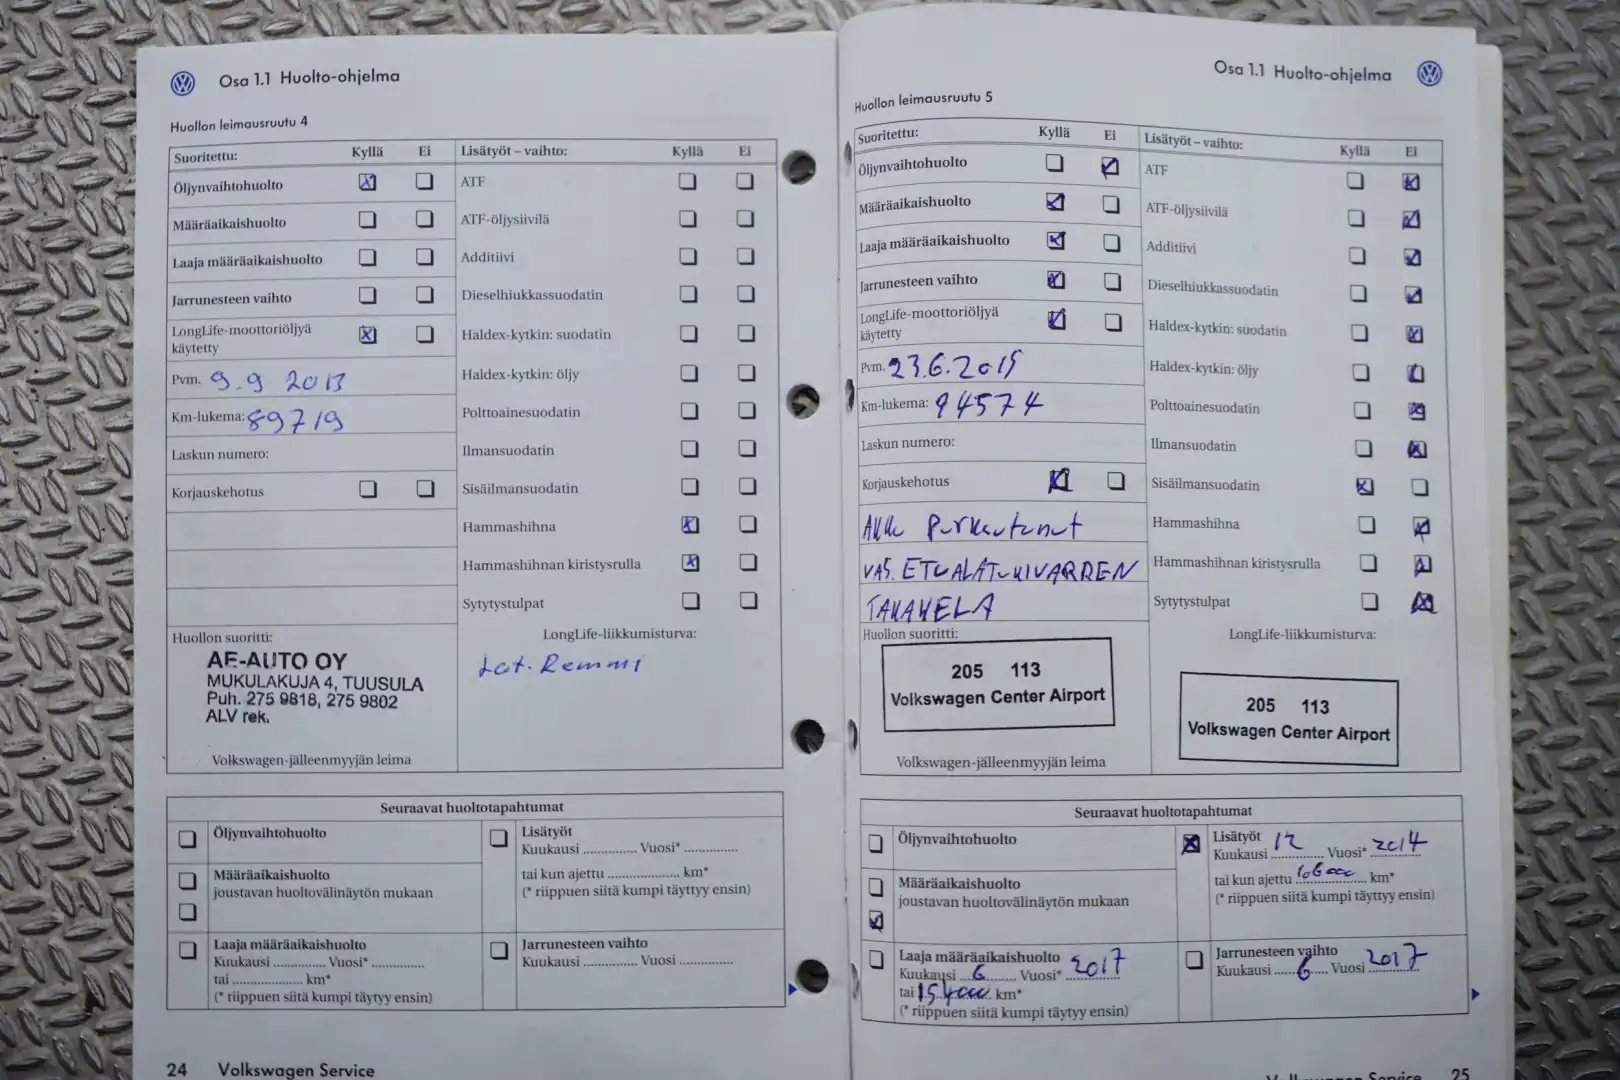 Osa 1.1 Huolto-ohjelma
Huollon leimausruutu 4
Suoritettu: Kyllä Ei
Öljynvaihtohuolto
Määräaikaishuolto
Laaja määräaikaishuolto
Jarrunesteen vaihto
LongLife-moottoriöljyä
käytetty
Pvm. 9.9 2013
Km-lukema: 89719
Laskun numero:
Korjauskehotus
Lisätyöt – vaihto: Kyllä Ei
ATF
ATF-öljysiivilä
Additiivi
Dieselhiukkassuodatin
Haldex-kytkin: suodatin
Haldex-kytkin: öljy
Polttoainesuodatin
Ilmansuodatin
Sisäilmansuodatin
Hammashihna
Hammashihnan kiristysrulla
Sytytystulpat
Huollon suoritti:
AE-AUTO OY
MUKULAKUJA 4, TUUSULA
Puh. 275 9818, 275 9802
ALV rek.
Volkswagen-jälleenmyyjän leima
LongLife-liikkumisturva:
Seuraavat huoltotapahtumat
Öljynvaihtohuolto
Määräaikaishuolto
joustavan huoltovälinäytön mukaan
Laaja määräaikaishuolto
Kuukausi .............. Vuosi* ..............
tai .................... km*
(* riippuen siitä kumpi täytyy ensin)
Lisätyöt
Kuukausi .............. Vuosi* ..............
tai kun ajettu .................... km*
(* riippuen siitä kumpi täyttyy ensin)
Jarrunesteen vaihto
Kuukausi .............. Vuosi ..............
24 Volkswagen Service
Osa 1.1 Huolto-ohjelma
Huollon leimausruutu 5
Suoritettu: Kyllä Ei
Öljynvaihtohuolto
Määräaikaishuolto
Laaja määräaikaishuolto
Jarrunesteen vaihto
LongLife-moottoriöljyä
käytetty
Pvm. 23.6.2015
Km-lukema: 94574
Laskun numero:
Korjauskehotus
VAS. ETUALATUKIVARREN
TAKAHELA
Lisätyöt – vaihto: Kyllä Ei
ATF
ATF-öljysiivilä
Additiivi
Dieselhiukkassuodatin
Haldex-kytkin: suodatin
Haldex-kytkin: öljy
Polttoainesuodatin
Ilmansuodatin
Sisäilmansuodatin
Hammashihna
Hammashihnan kiristysrulla
Sytytystulpat
Huollon suoritti:
205 113
Volkswagen Center Airport
Volkswagen-jälleenmyyjän leima
LongLife-liikkumisturva:
205 113
Volkswagen Center Airport
Seuraavat huoltotapahtumat
Öljynvaihtohuolto
Määräaikaishuolto
joustavan huoltovälinäytön mukaan
Laaja määräaikaishuolto
Kuukausi 6 Vuosi* 2017
tai 154000 km*
(* riippuen siitä kumpi täytyy ensin)
Lisätyöt
Kuukausi 12 Vuosi* 2014
tai kun ajettu km*
(* riippuen siitä kumpi täyttyy ensin)
Jarrunesteen vaihto
Kuukausi 6 Vuosi 2017
Service 25